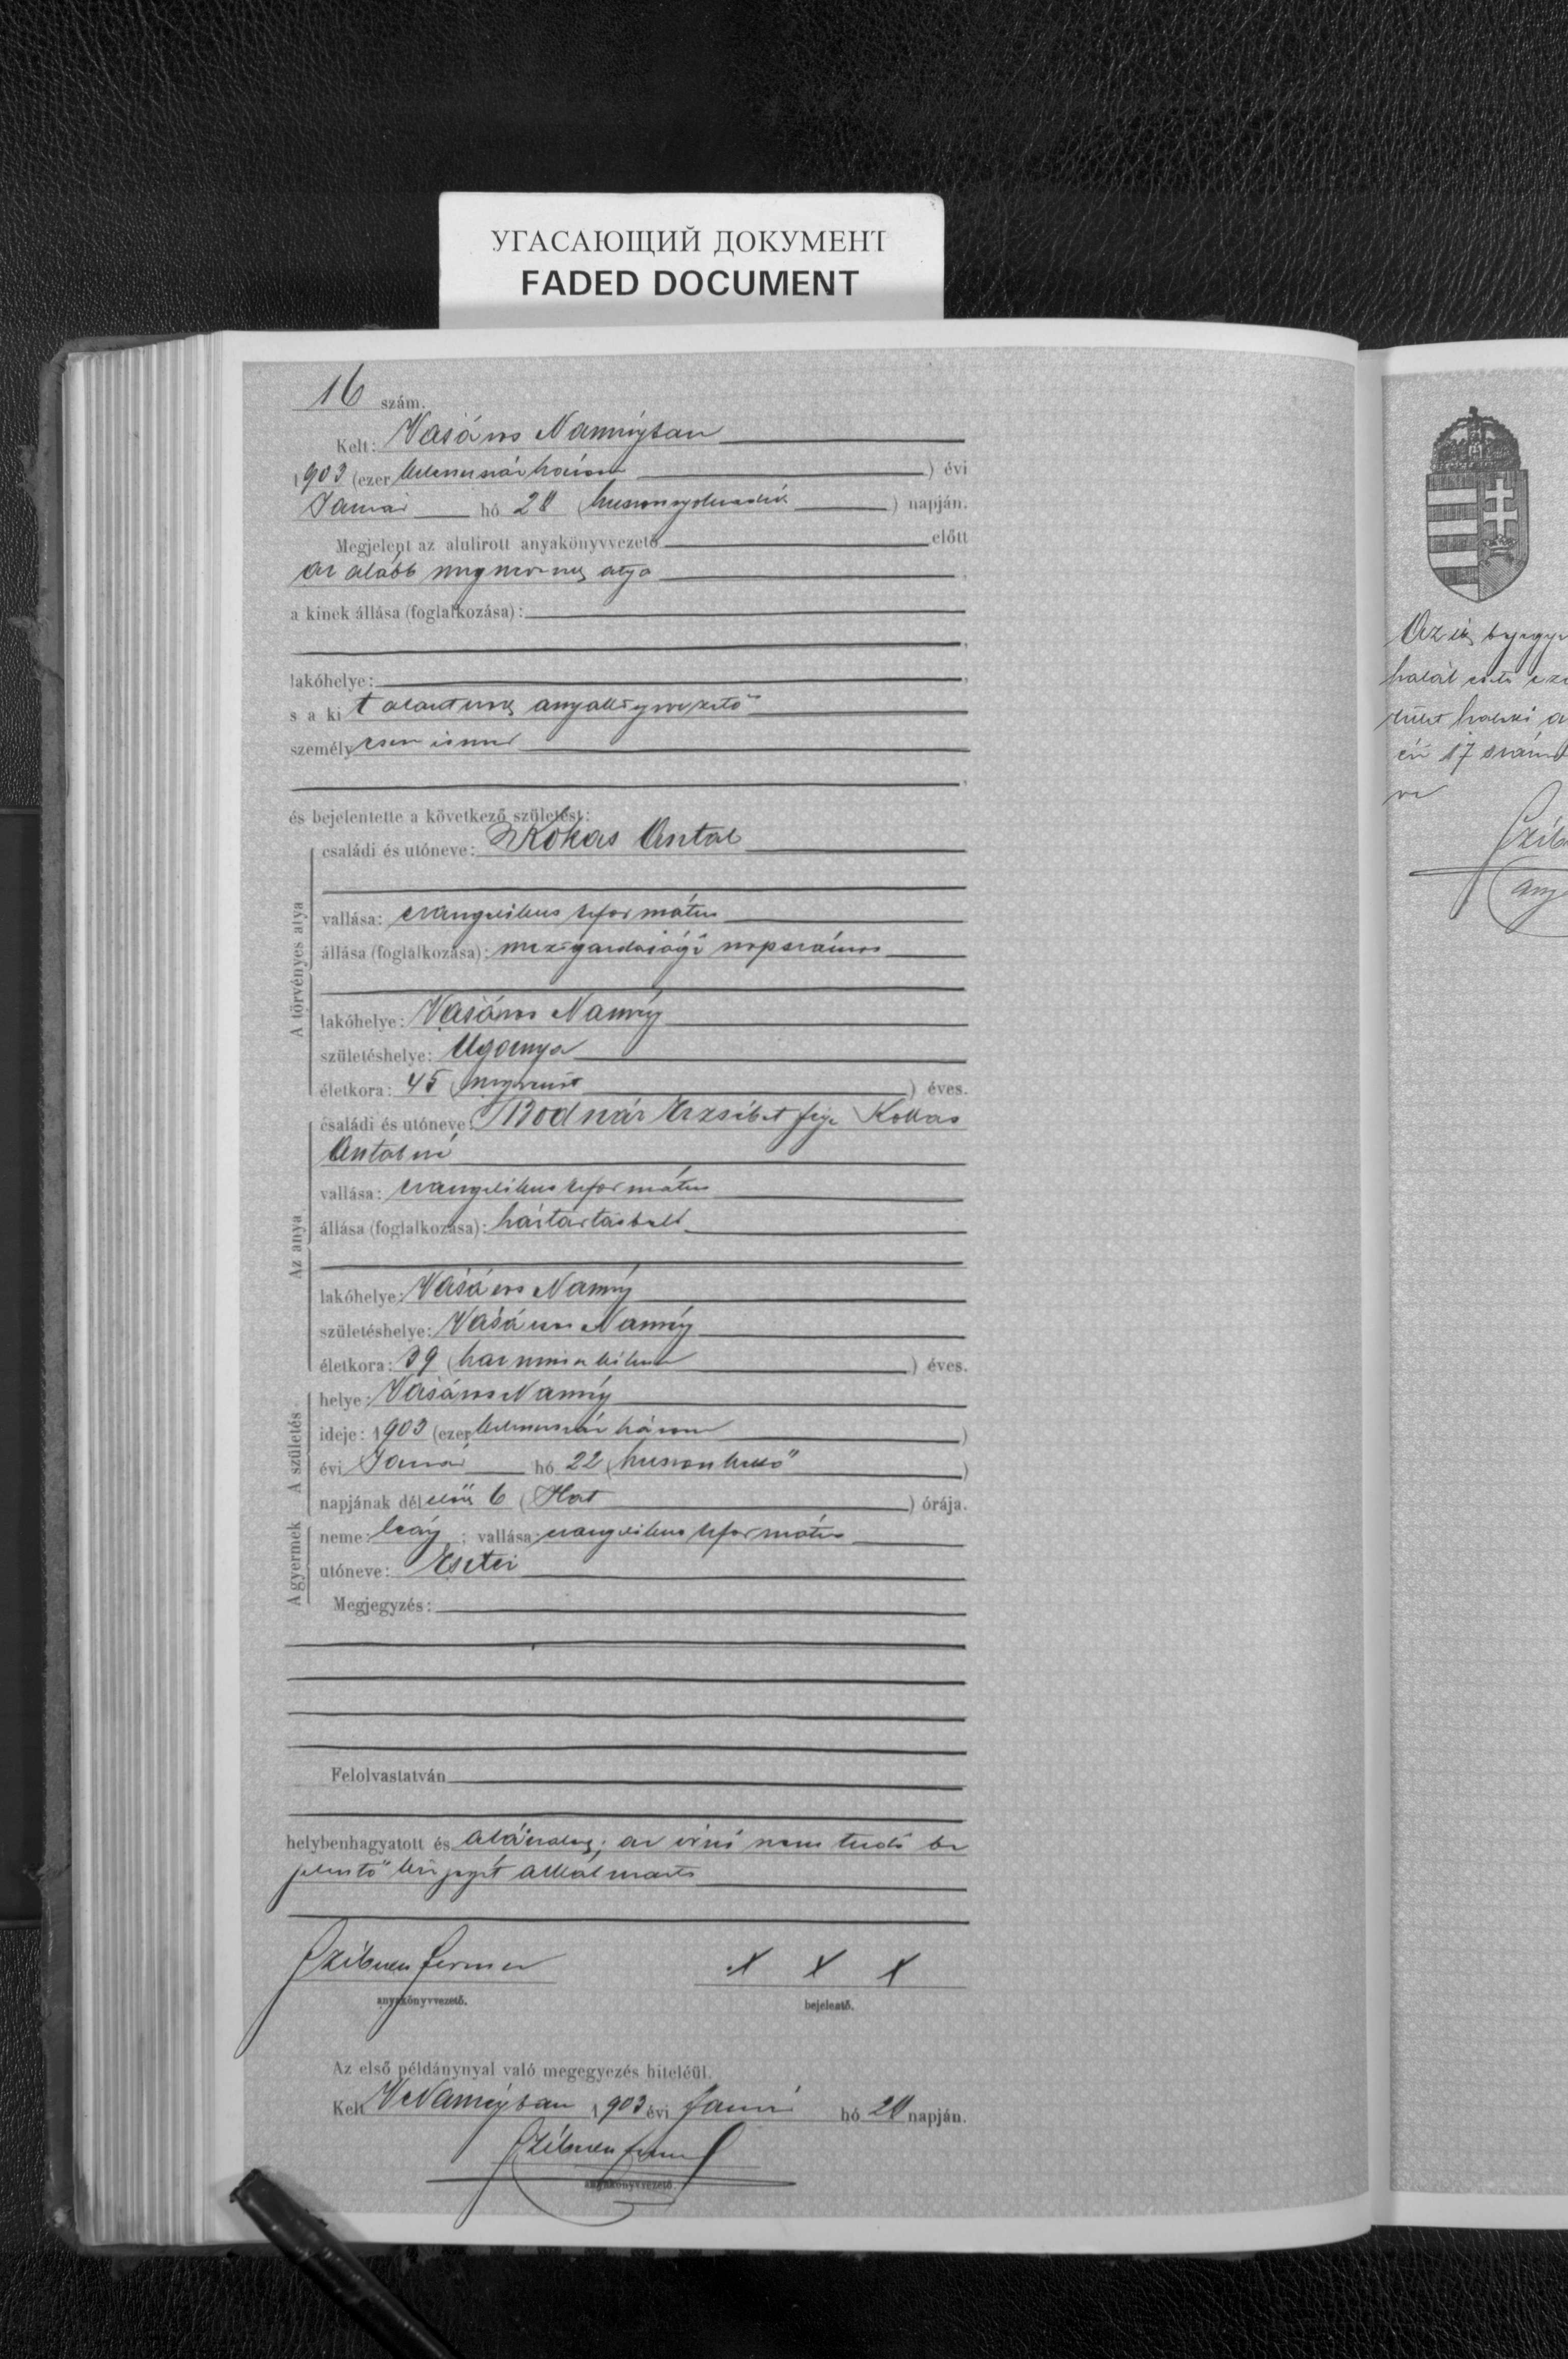 УГАСАЮЩИЙ ДОКУМЕНТ
FADED DOCUMENT
16 szám.
Kelt: Vásáros Naményban
1903 (ezer kilencszázhárom ) évi
Január hó 28 (huszonnyolcadik ) napján.
Megjelent az alulirott anyakönyvvezető előtt
az alább megnevezett atya ,
a kinek állása (foglalkozása):
,
lakóhelye: ,
s a kit alant anyakönyvvezető
személyesen ismer
,
és bejelentette a következő születést:
A törvényes atya
családi és utóneve: Kokas Antal
vallása: evangelikus református
állása (foglalkozása): mezőgazdasági napszámos
lakóhelye: Vásáros Namény
születéshelye: Ugornya
életkora: 45 ( ) éves.
Az anya
családi és utóneve: Bodnár Erzsébet férj. Kokas
Antalné
vallása: evangelikus református
állása (foglalkozása): háztartásbeli
lakóhelye: Vásáros Namény
születéshelye: Vásáros Namény
életkora: 39 (harminckilenc ) éves.
A születés
helye: Vásáros Namény
ideje: 1903 (ezer kilencszázhárom )
évi Január hó 22 (huszonkettő )
napjának dél előtt 6 (Hat ) órája.
A gyermek
neme: leány ; vallása: evangelikus református
utóneve: Eszter
Megjegyzés:
Felolvastatván
helybenhagyatott és aláíratott; az írni nem tudó be
jelentő kézjegyét alkalmazta
anyakönyvvezető.
X X X
bejelentő.
Az első példánynyal való megegyezés hiteléül.
Kelt VNaményban 1903 évi Január hó 28 napján.
anyakönyvvezető.
halál
17 szám